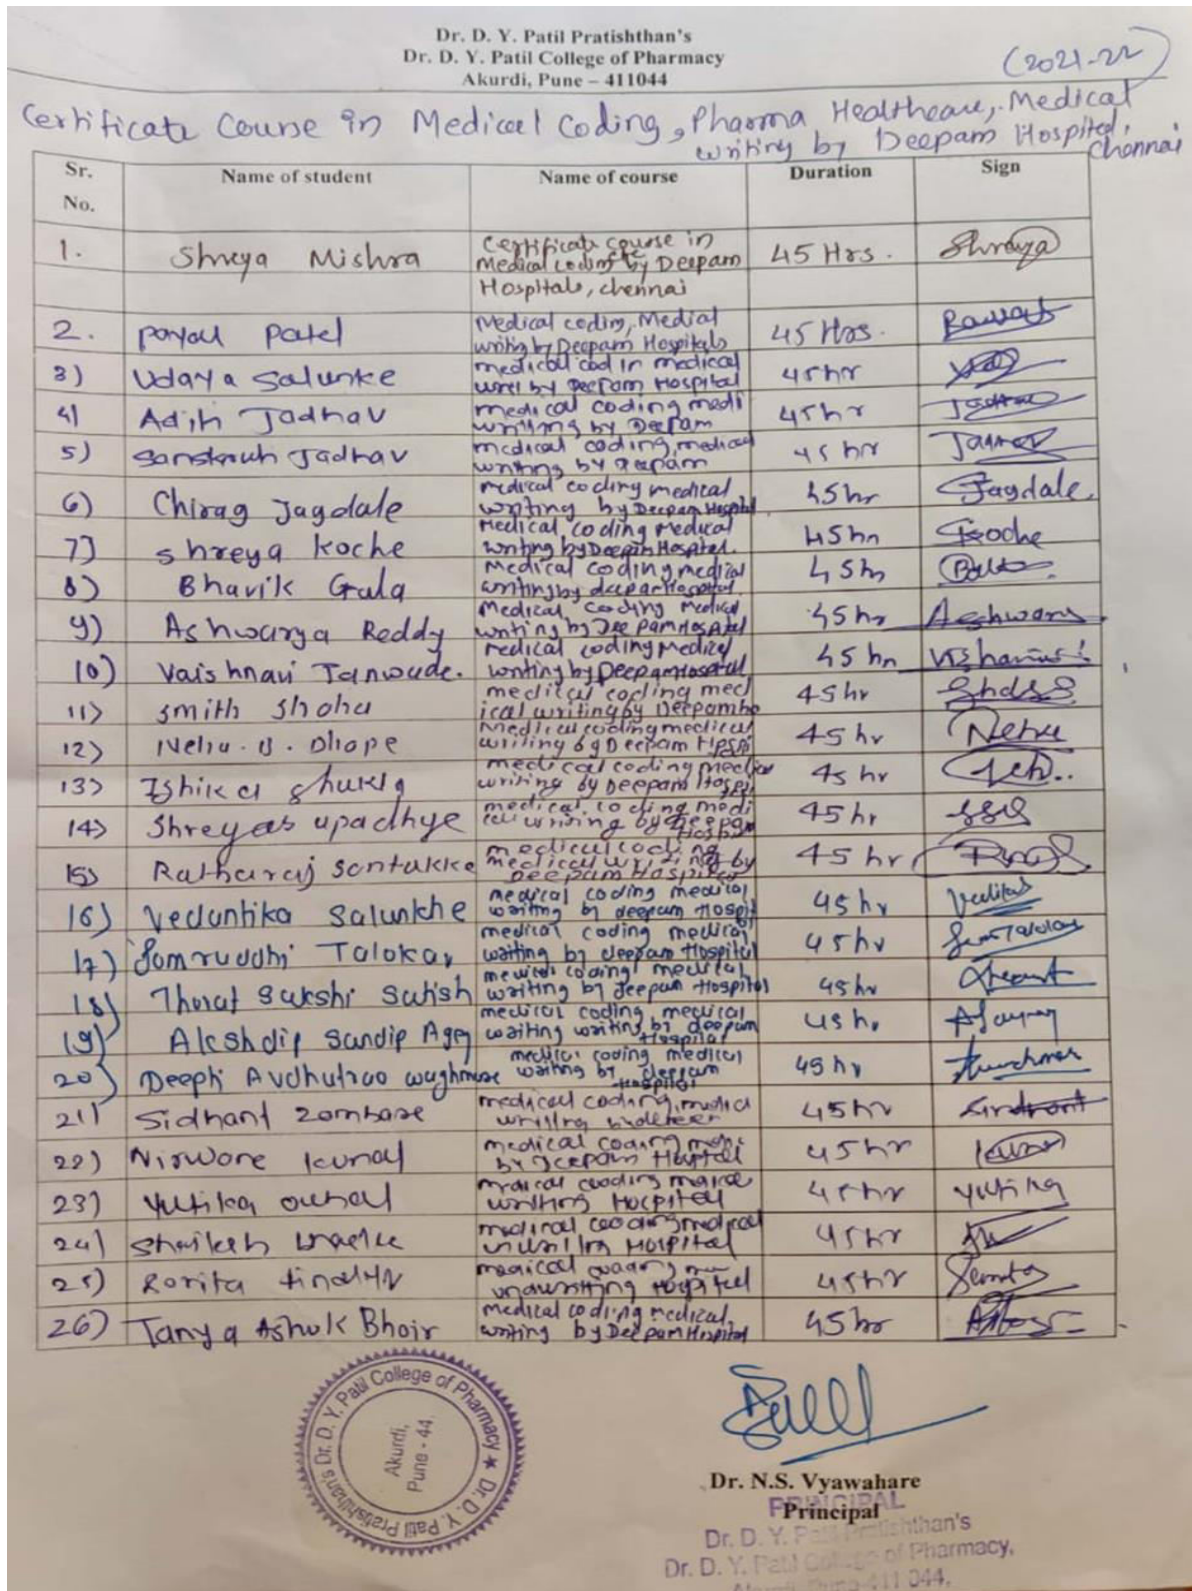 Dr. D. Y. Patil Pratishthan's
Dr. D. Y. Patil College of Pharmacy
Akurdi, Pune – 411044
(2021-22)
Certificate Course in Medical Coding, Pharma Healthcare, Medical
writing by Deepam Hospital,
Chennai
Sr. No. Name of student Name of course Duration Sign
1. Shreya Mishra Certificate course in 45 Hrs. Shreya
Medical coding by Deepam
Hospitals, chennai
2. Payal Patel Medical coding, Medial 45 Hrs.
writing by Deepam Hospitals
3) Udaya Salunke medical cod in medical 45hr
by Deepam Hospital
4) Jadhav medical coding medi 45hr
writing by Deepam
5) Jadhav medical coding, medical 45hr
writing by deepam
6) Chirag Jagdale medical coding medical 45hr Jagdale
writing by Deepam Hospital
7) Shreya Koche Medical coding Medical 45hr Koche
writing by Deepam Hospital.
8) Bhavik Gala Medical coding medical 45hr
writing by deepam Hospital.
9) Ashwarya Reddy Medical coding Medical 45hr
writing by Deepam Hospital
10) Vaishnavi Tanwade. Medical coding Medical 45hr
writing by Deepam Hospital
11) Smith Shaha medical coding med 45hr
ical writing by Deepam ho
12) Neha. B. Dhope Medical coding medical 45hr Neha
writing by Deepam Hospi
13) Ishika Shukla medical coding medical 45hr
writing by Deepam Hospi
14) Shreyas upadhye medical coding medi 45hr
cal writing by Deepam
Hospi
15) Sontakke medical coding 45hr
medical writing by
Deepam Hospital
16) Vedantika Salunkhe medical coding medical 45hr
writing by deepam Hospit
17) Samruddhi Talokar medical coding medical 45hr
writing by deepam Hospital
18) Thorat Sakshi Satish medical coding medical 45hr
writing by deepam Hospital
19) Akshdip Sandip medical coding medical 45hr
waiting waiting by deepam
Hospital
20) Deepti Avdhutrao waghmare medical coding medical 45hr
waiting by deepam
Hospital
21) Sidhant Zombase medical coding, medica 45hr Sidhant
writing
22) Nirwane kunal medical coding 45hr Kunal
by Deepam Hospital
23) Yutika medical coading 45hr yutika
writing Hospital
24) Shaikh medical coading medical 45hr
Hospital
25) medical 45hr
Hospital
26) Tanya Ashok Bhoir medical coding medical 45hr
writing by Deepam Hospital
Dr. D. Y. Patil Pratishthan's Dr. D. Y. Patil College of Pharmacy ★
Akurdi,
Pune - 44.
Dr. N.S. Vyawahare
PRINCIPAL
Principal
Dr. D. Y. Patil Pratishthan's
Dr. D. Y. Patil College of Pharmacy,
Akurdi, Pune-411 044.